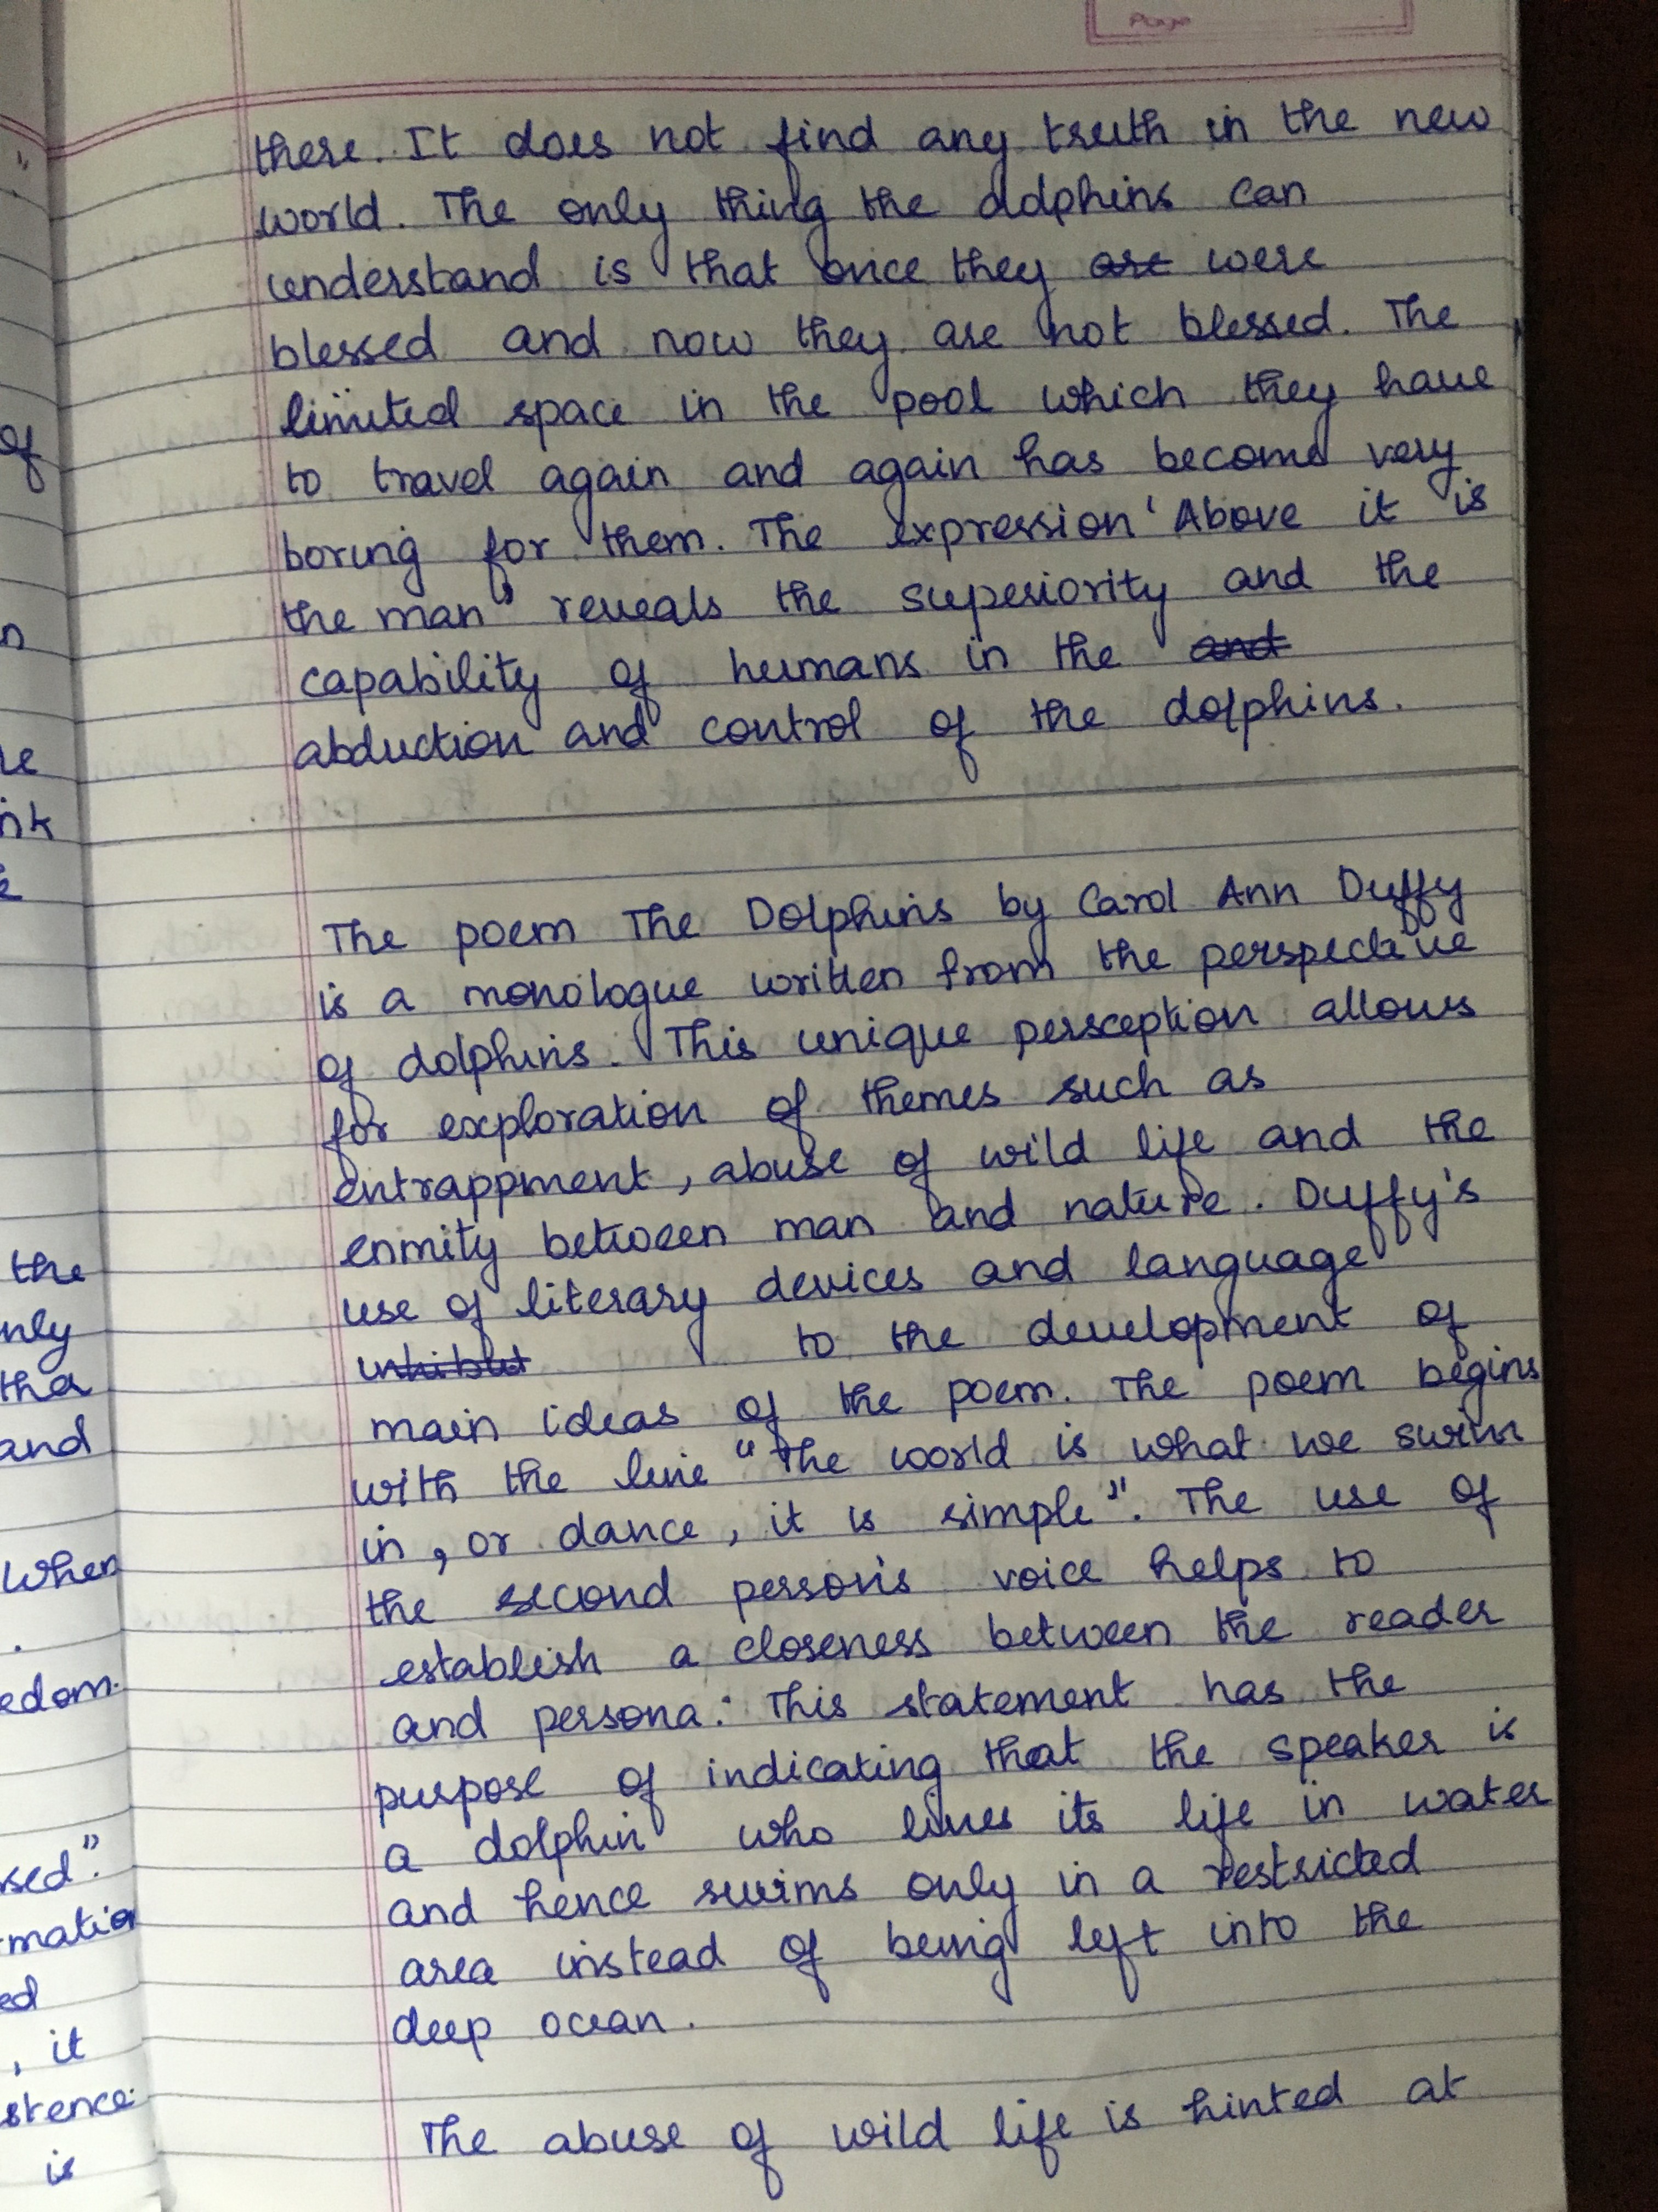 Page
there. It does not find any truth in the new
world. The only thing the dolphins can
understand is that once they are were
blessed and now they are not blessed. The
limited space in the pool which they have
to travel again and again has become very
boring for them. The expression 'Above it is
the man" reveals the superiority and the
capability of humans in the and
abduction and control of the dolphins.
The poem The Dolphins by Carol Ann Duffy
is a monologue written from the perspective
of dolphins. This unique persception allows
for exploration of themes such as
entrappment, abuse of wild life and the
enmity between man and nature. Duffy's
use of literary devices and language
to the development of
main ideas of the poem. The poem begins
with the line "The world is what we swim
in, or dance, it is simple". The use of
the second person's voice helps to
establish a closeness between the reader
and persona. This statement has the
purpose of indicating that the speaker is
a dolphin who lives its life in water
and hence swims only in a restricted
area instead of being left into the
deep ocean.
The abuse of wild life is hinted at
of
the
and
When
it
is